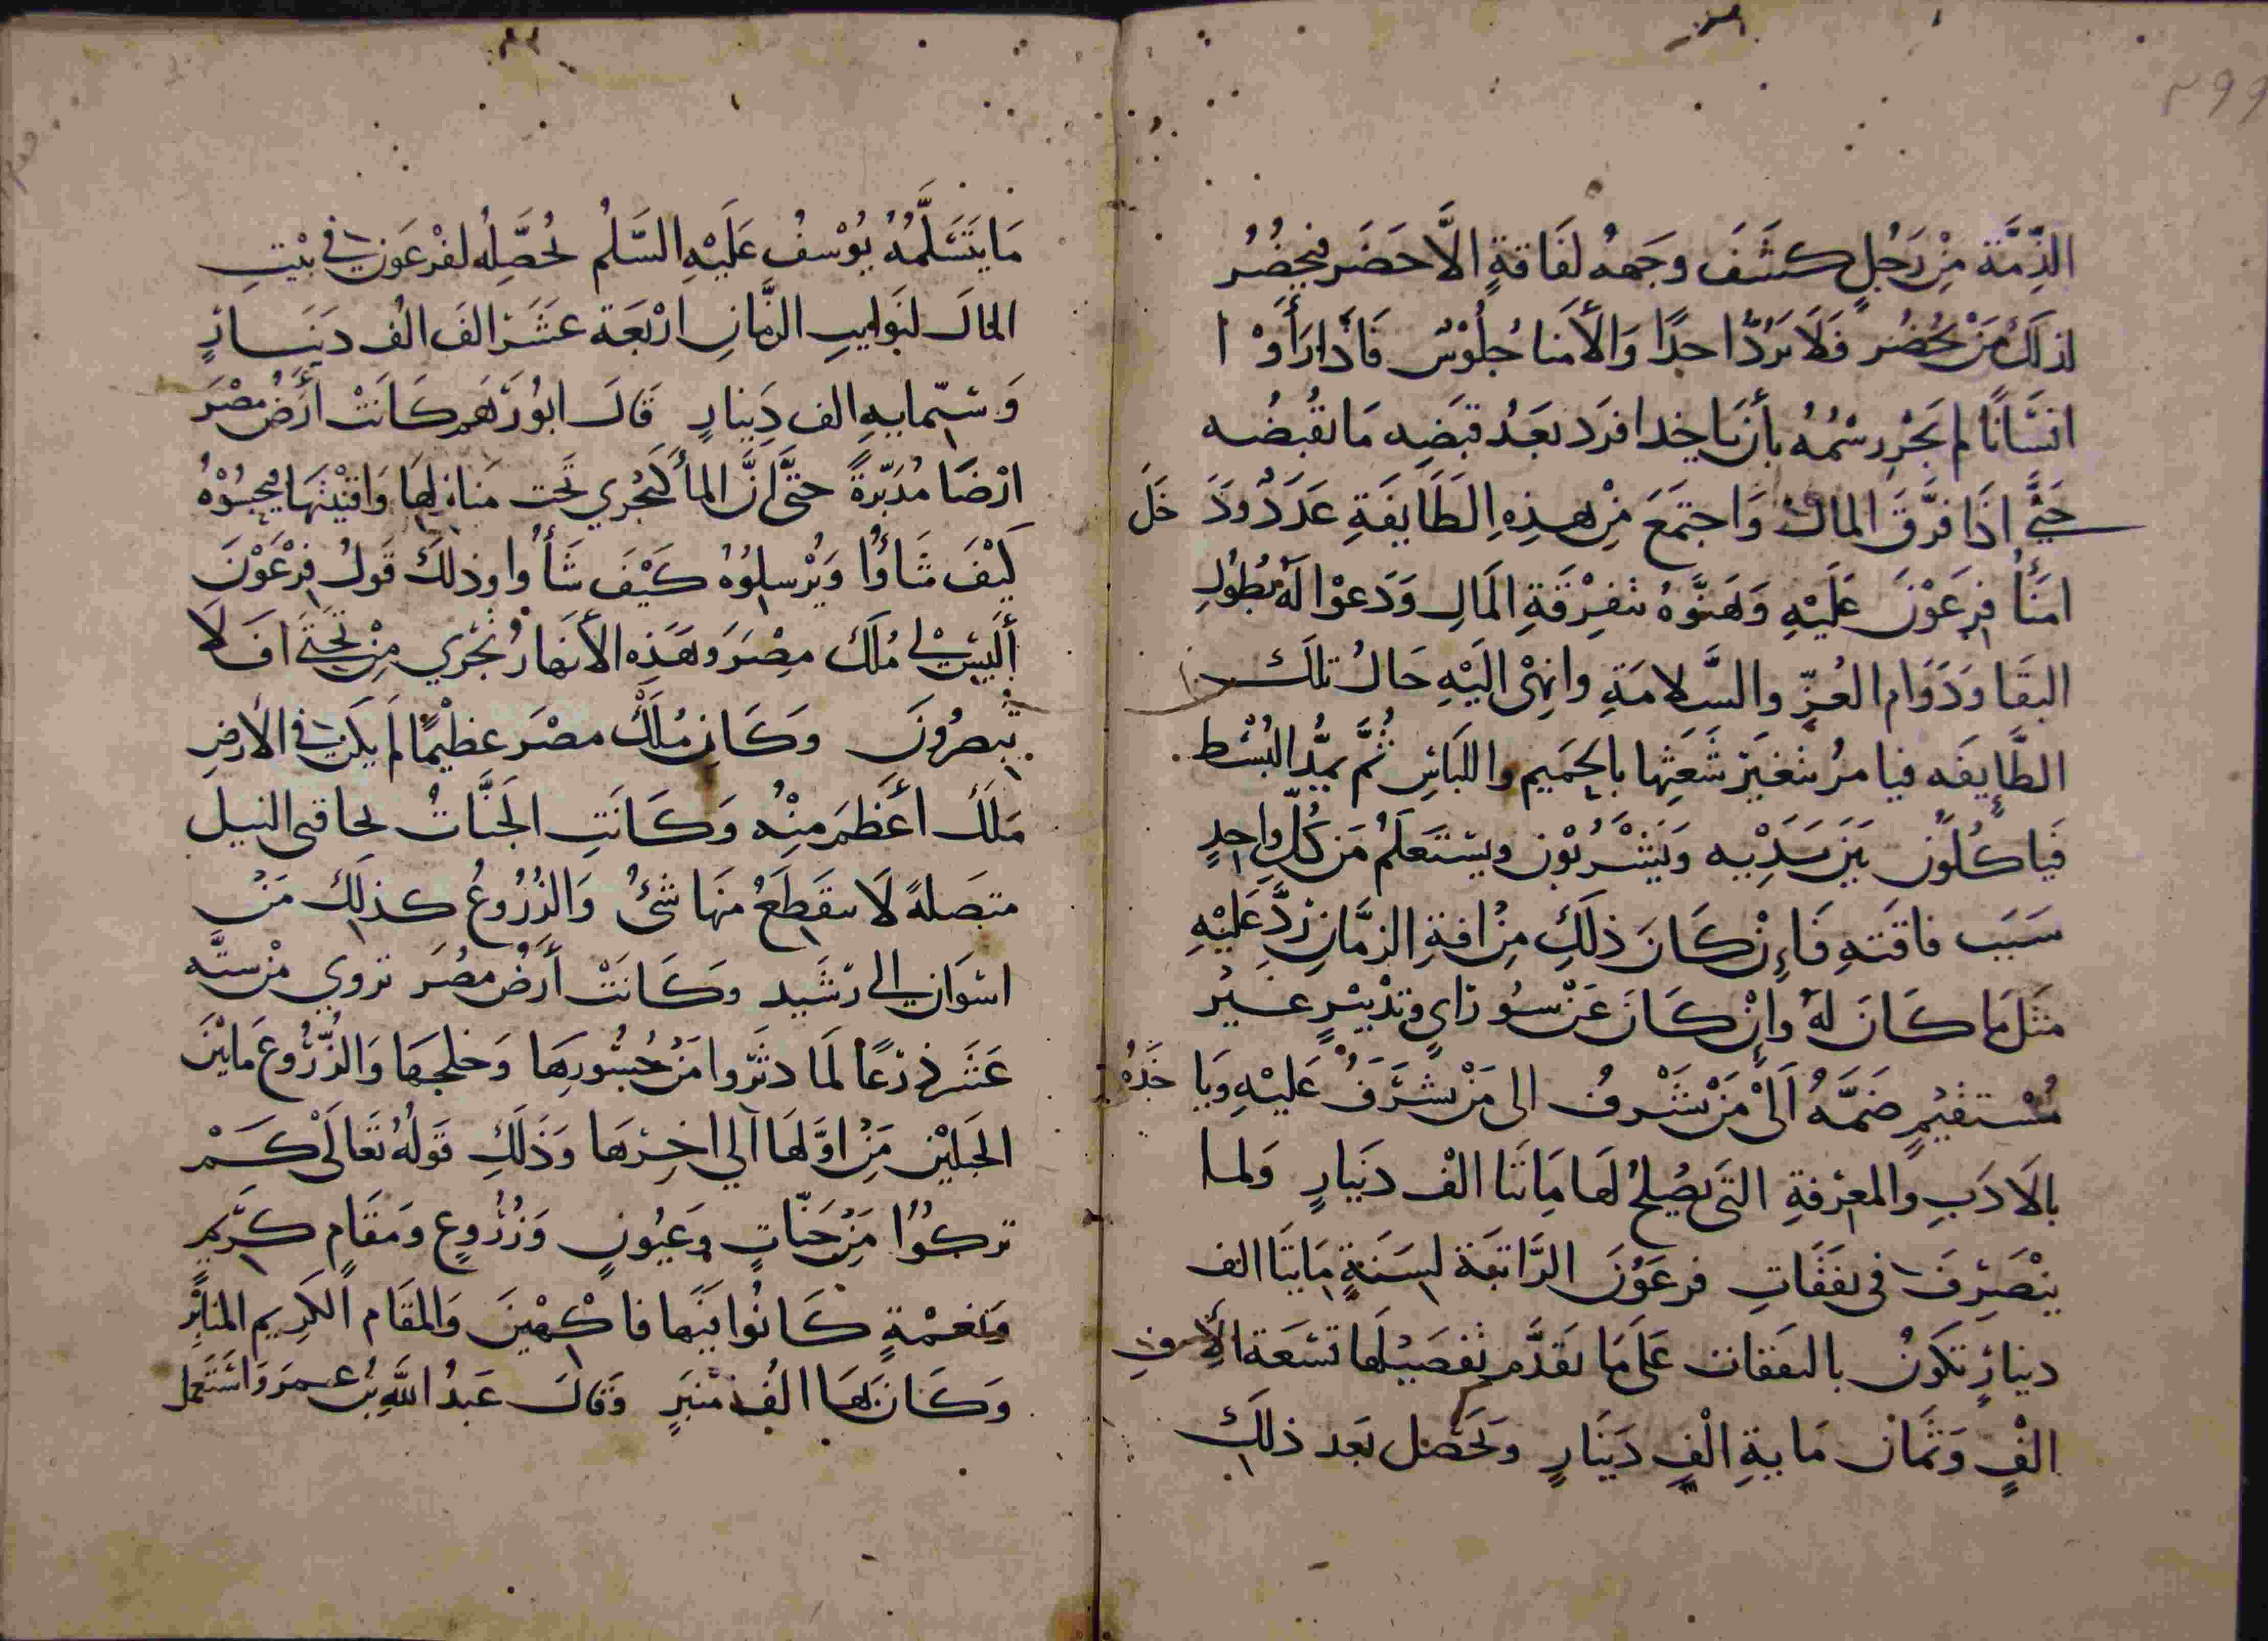 الذِّمَّة مِنْ رَجُلٍ كشَفَ وجهه لفَاقةٍ الَّا حَضَر فيحضُرُ
لذلكَ مَنْ يحْضُر فَلَا يَرُدُّ احدًا وَالأمنا جُلُوْسٌ فَاذا رَأَوْا
انسَانًا لم يَجْرِ رسْمُهُ بأن ياخدا فرد بعدُ قبَضِه مَا يقْبضُه
حَتَّى اذَا فرَّقَ المالَ وَاجتمَعَ مِنْ هذِهِ الطَّايفَةِ عَدَدٌ ودَخَلَ
امَنَأُ فِرعَوْنَ عَلَيْهِ وَهَنَّوهُ بتفِرْقَةِ المَالِ وَدَعوْا لَهُ بطُولِ
البقَا وَدَوَام العُزِّ والسَّلامَةِ وانهىْ اليْهِ حَالُ تلكَ
الطَّايفَه فيامرُ بتغيَرْ شَعَثِها بالحَمِيم واللبَاسِ ثُمَّ يمَدُّ البُسْط
فَياكُلوُن بَيَن يَدَيْه وَيَشْرَبُوْن ويسْتعلَمُ مَن كُلِّ واحدٍ
سَبَب فاقَتهِ فَاءِنْ كَانَ ذلَكِ مِنْ افةِ الزمَّانِ رَدَّ عَليْهِ
مثَلَ مَا كَانَ لهُ وإنْ كَانَ عَنْ سُو رَايٍ وتدْبيْرٍ غَيْر
مُستقيْمٍ ضَمَّهُ اَلىْ مَنْ يَشْرفُ الى مَنْ يشَرَفُ عَليْهِ ويَا خذُه
بالَادَبِ والمَعرْفةِ التَى يصْلحُ لَها مَاَيتا الْف دنَيارٍ وَلما
ينْصَرِفَ فى نفَقَاتِ فرعَوْنَ الرَّاتبَة لِسَنَةٍ مَايتَا الف
دينارٍ تكَونُ بالنفقات عَلى مَا تقدَّم تفصيْلَها تسْعَة الأف
الْفٍ وَثَمان مَايةِ الْفٍ دَينَارٍ وتحَصْل بَعد ذلكَ
مَا يتَسَلَّمُهُ يُوْسُفُ عَلَيْهِ السَّلم يُحَصِّلُه لفِرْعَون في بيْتِ
المالَ لنَوايبِ الزمَّانِ ارْبَعَة عَشَر الفَ الْف دَينَارٍ
وَستّمايهِ الف دِينارٍ قَالَ ابوُ رُهْم كَانَتْ أَرْضُ مصْرَ
ارْضَا مُدَبّرةً حتَّى انَّ المأَ لَيجْري تحَت منازلهَا وَافنْيتهَا فيحبسُوْهُ
كَيْفَ شَاؤُا وَيُرْسِلُوُهُ كَيْفَ شَأُوا وذلكَ قَولُ فرْعَوْنَ
أليَسْ لي مُلَكَ مِصْرَ وهَذهِ الأنهارُ تجَري مِنْ تحْتى افَلَا
تبْصرُونَ وَكَانَ مُلْكُ مصْرَ عظيْمًا لم يكَن في الأرضِ
مَلَكَ أعَظمَ منْهُ وَكَانَتِ الجَنَّاتُ بحافتى النيل
متصَلةً لَا ينقطِعُ منْهَا شئٌ وَالزُرُوعُ كذلِكَ مَنْ
اسْوَان الى رَشَيد وَكَانَتْ أَرضُ مصْر تروي منْ ستَّه
عَشَر ذرَعًا لمَا دبّرَوا مَنْ جُسُورِهَا وَخلجهَا وَالزُّرُوعِ مَا بيْنَ
الجَبَليْن مَنْ اوَّلهَا الي اخِرهَا وَذلَكِ قَولَهُ تَعالىَ كَمْ
تركوُا مَنْ جَنّاتٍ وَعَيُونٍ وَزُرُوعٍ ومَقَامٍ كرَيمٍ
وَنعمْةٍ كَانُوا فيَها فاكهْينَ وَالمقام الكَرِيم المنابْر
وَكَانَ بهَا الْفُ منْبَرٍ وَقالَ عَبدُ اللَّهِ بْنُ عمرَ وَاسَتَعمل